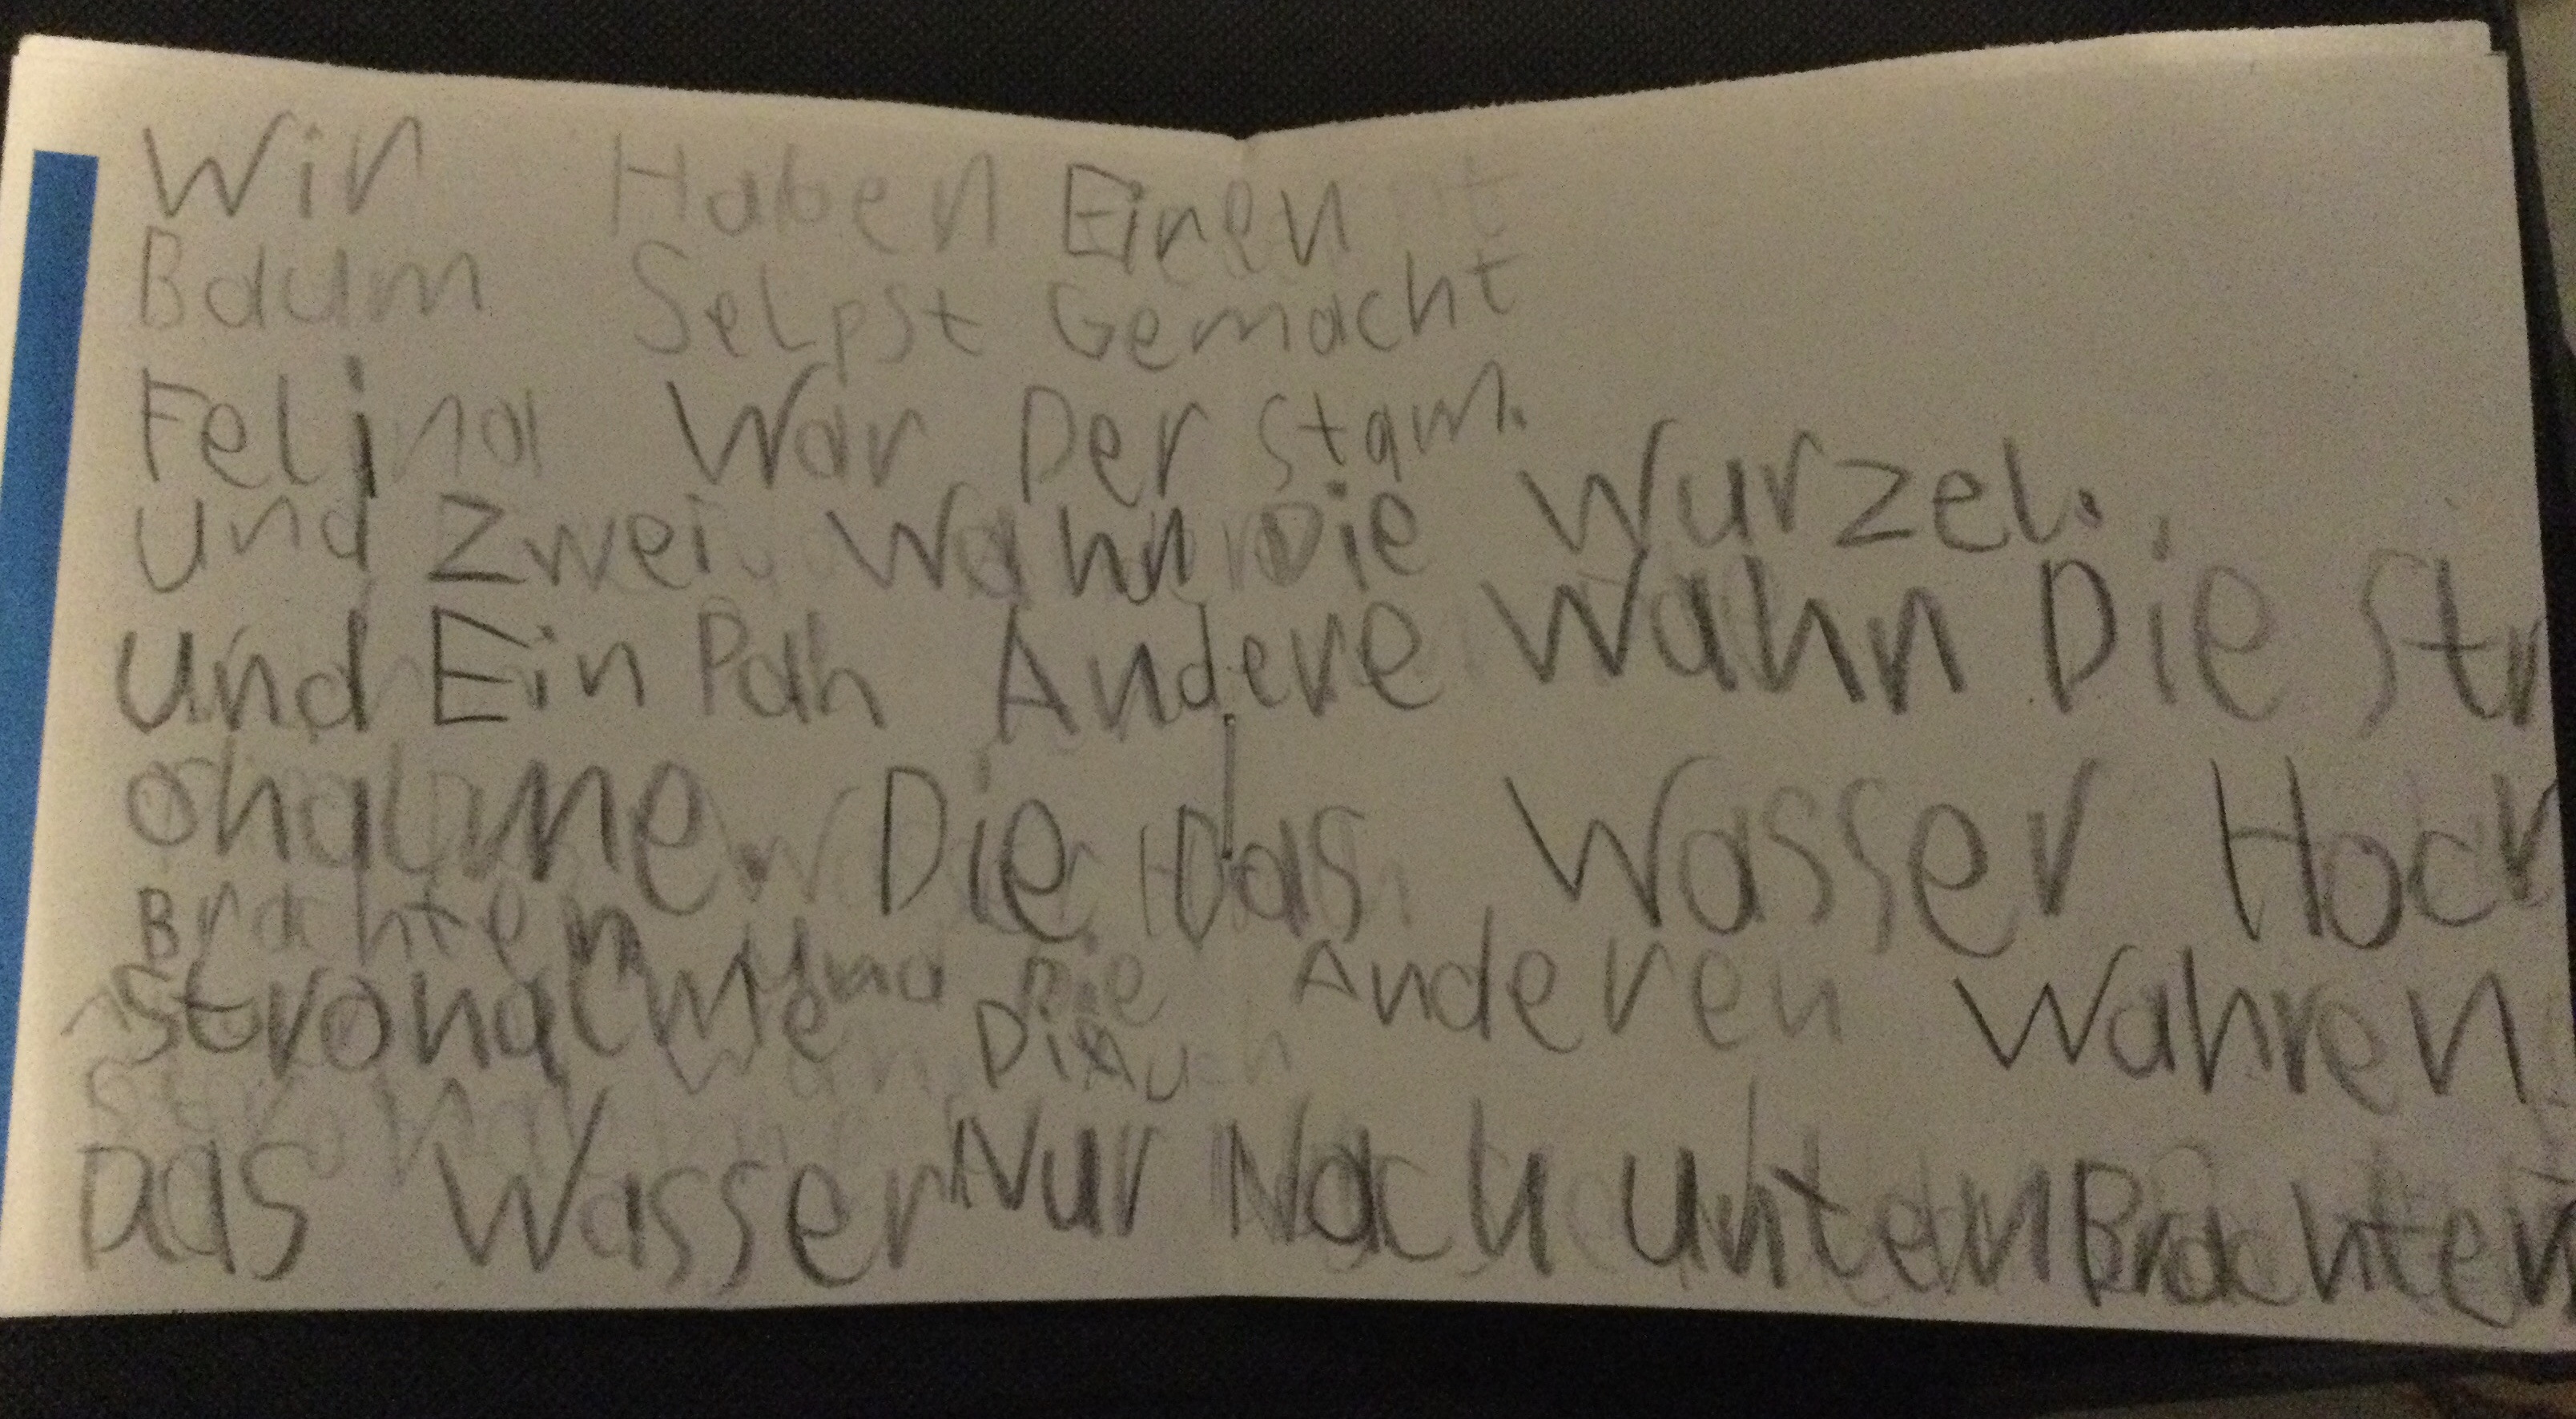 Wir Haben Einen
Baum Selpst Gemacht
Felina War Der Stam.
und Zwei Wahn Die Wurzel.
und Ein Pah Andere Wahn Die Str
ohalme. Die Das Wasser Hoch
Brachten und Die Anderen Wahren
Strohalme Die
Das Wasser Nur Nach unten Brachten